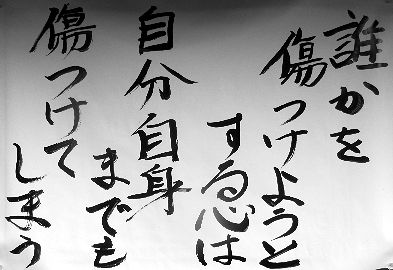 誰かを
傷つけようと
する心は
自分自身
までも
傷つけて
しまう